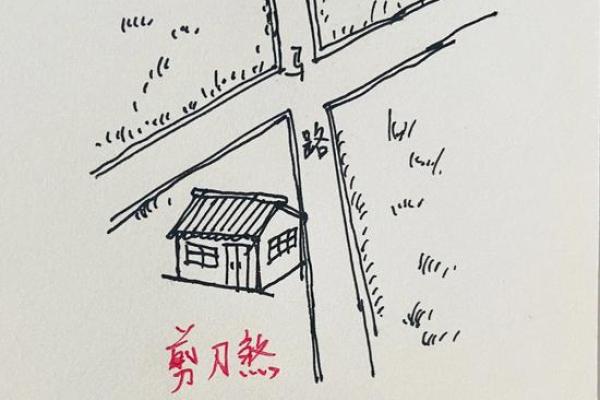 马
路
剪刀煞